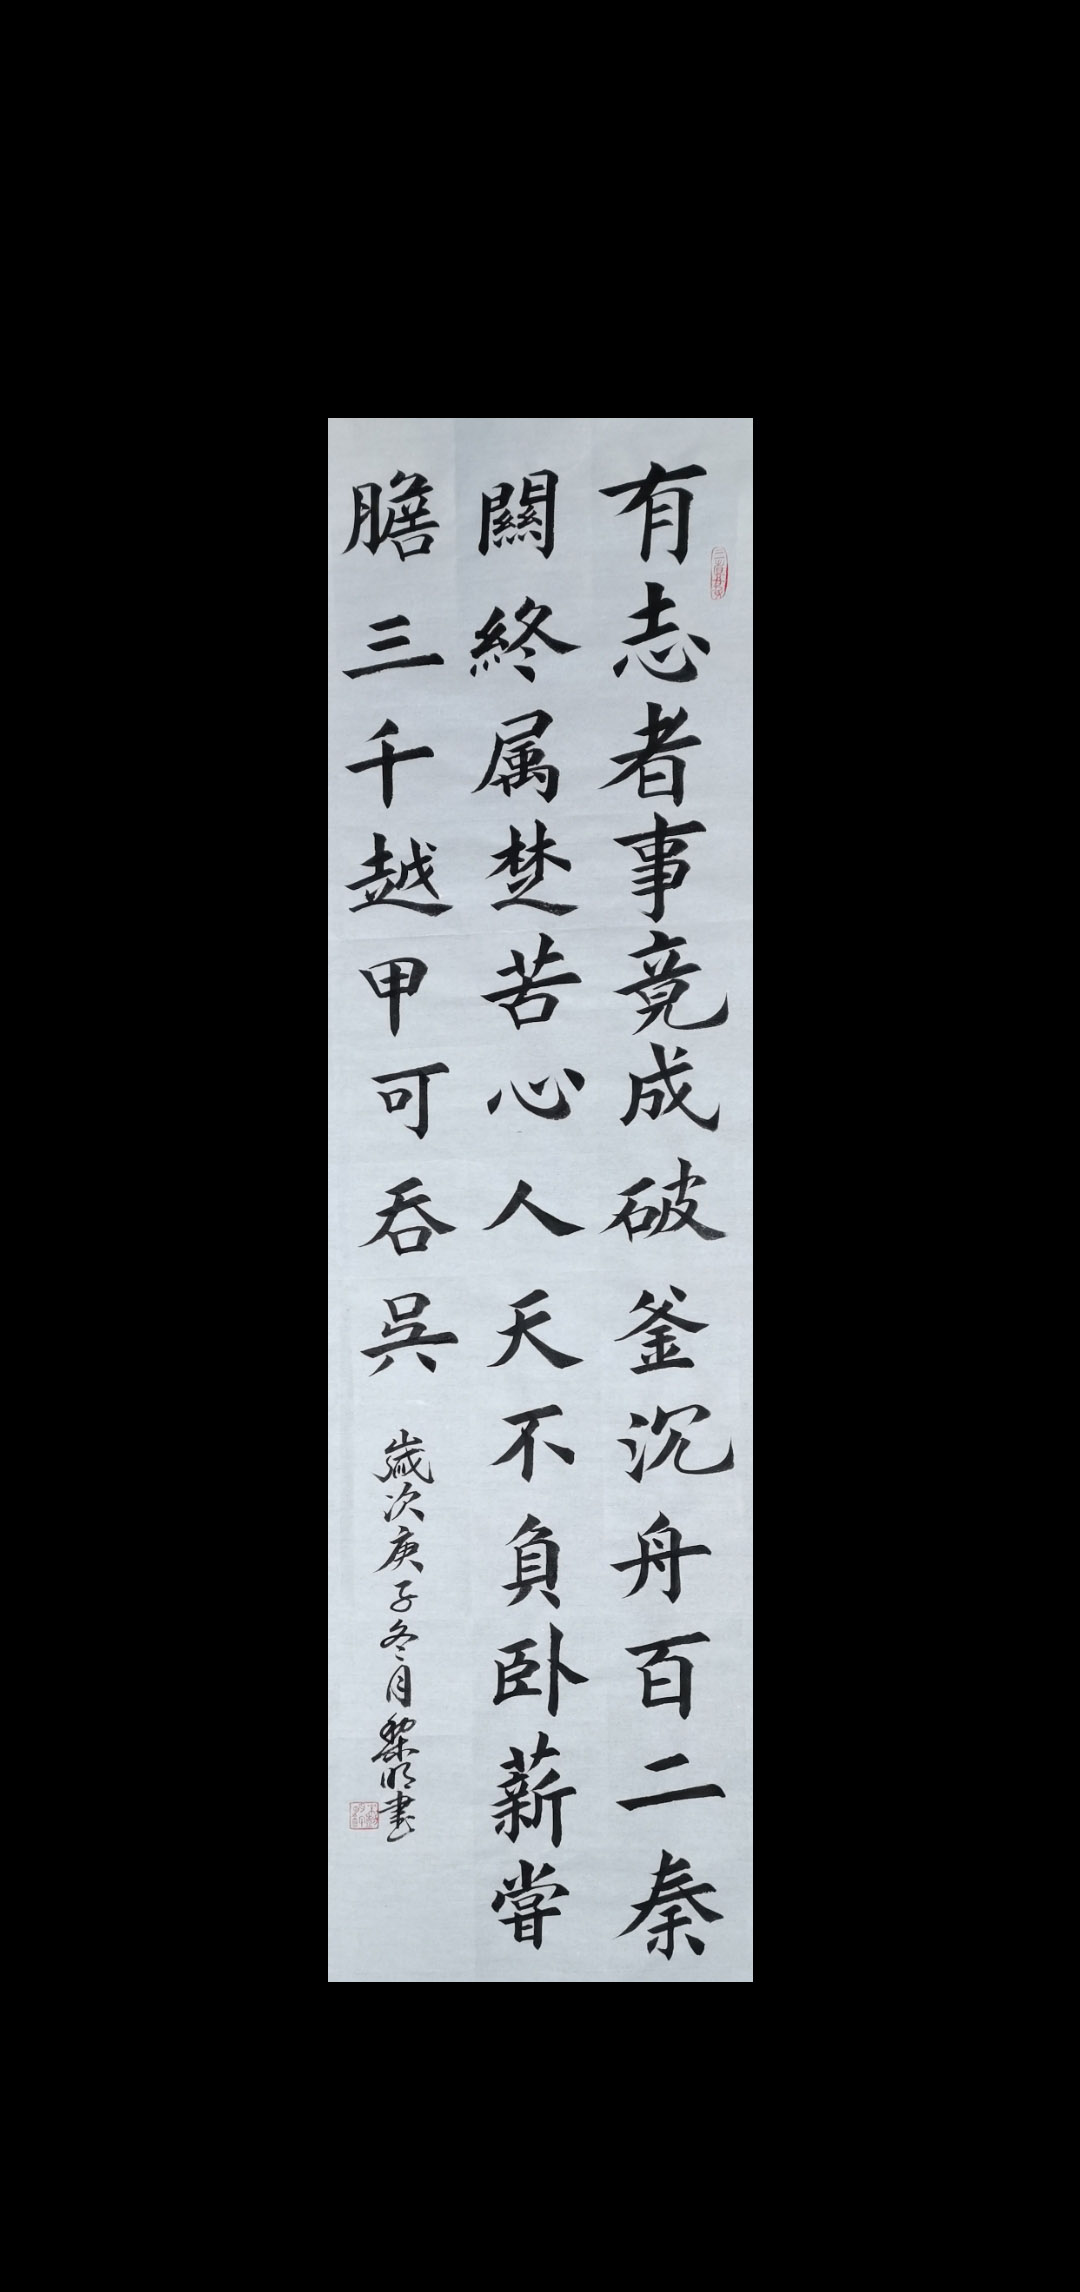 有志者事竟成破釜沉舟百二秦
關終属楚苦心人天不負卧薪嘗
膽三千越甲可吞吳
歲次庚子冬月黎明書